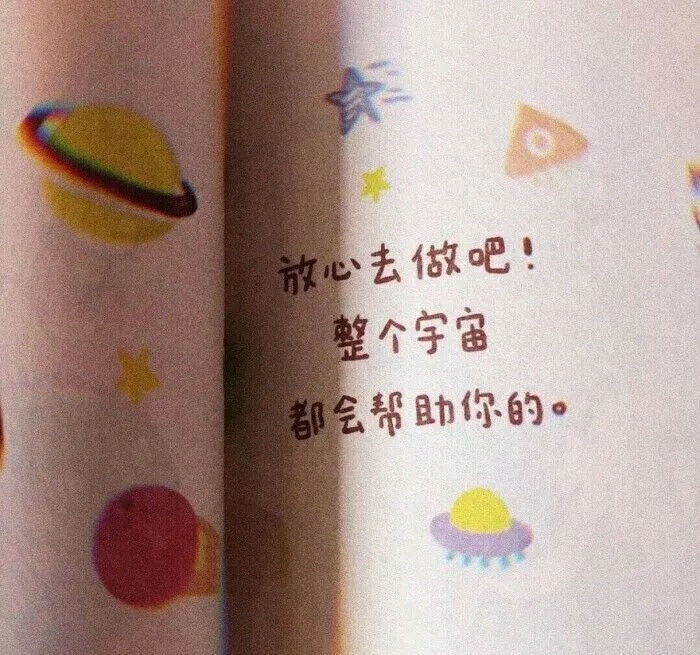 放心去做吧！
整个宇宙
都会帮助你的。